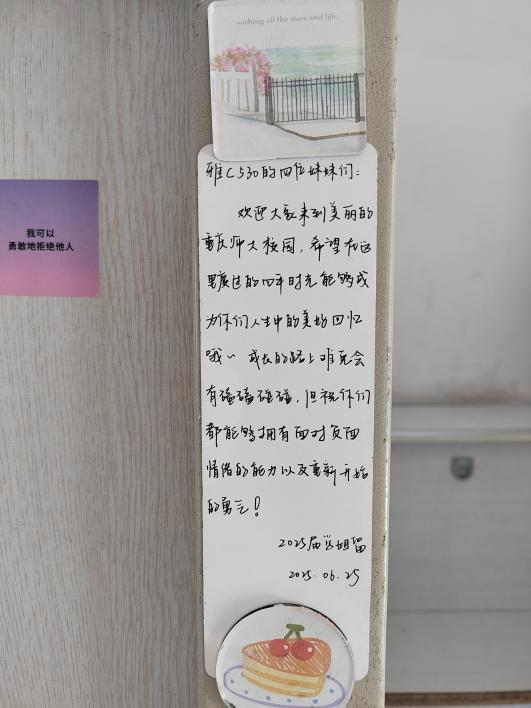 wishing all the stars and life.
雅C530的四位妹妹们:
欢迎大家来到美丽的
重庆师大校园,希望在这
里度过的四年时光能够成
为你们人生中的美好回忆
哦~ 成长的路上难免会
有磕磕碰碰,但祝你们
都能够拥有面对负面
情绪的能力以及重新开始
的勇气!
2025届学姐留
2025.06.25
我可以
勇敢地拒绝他人